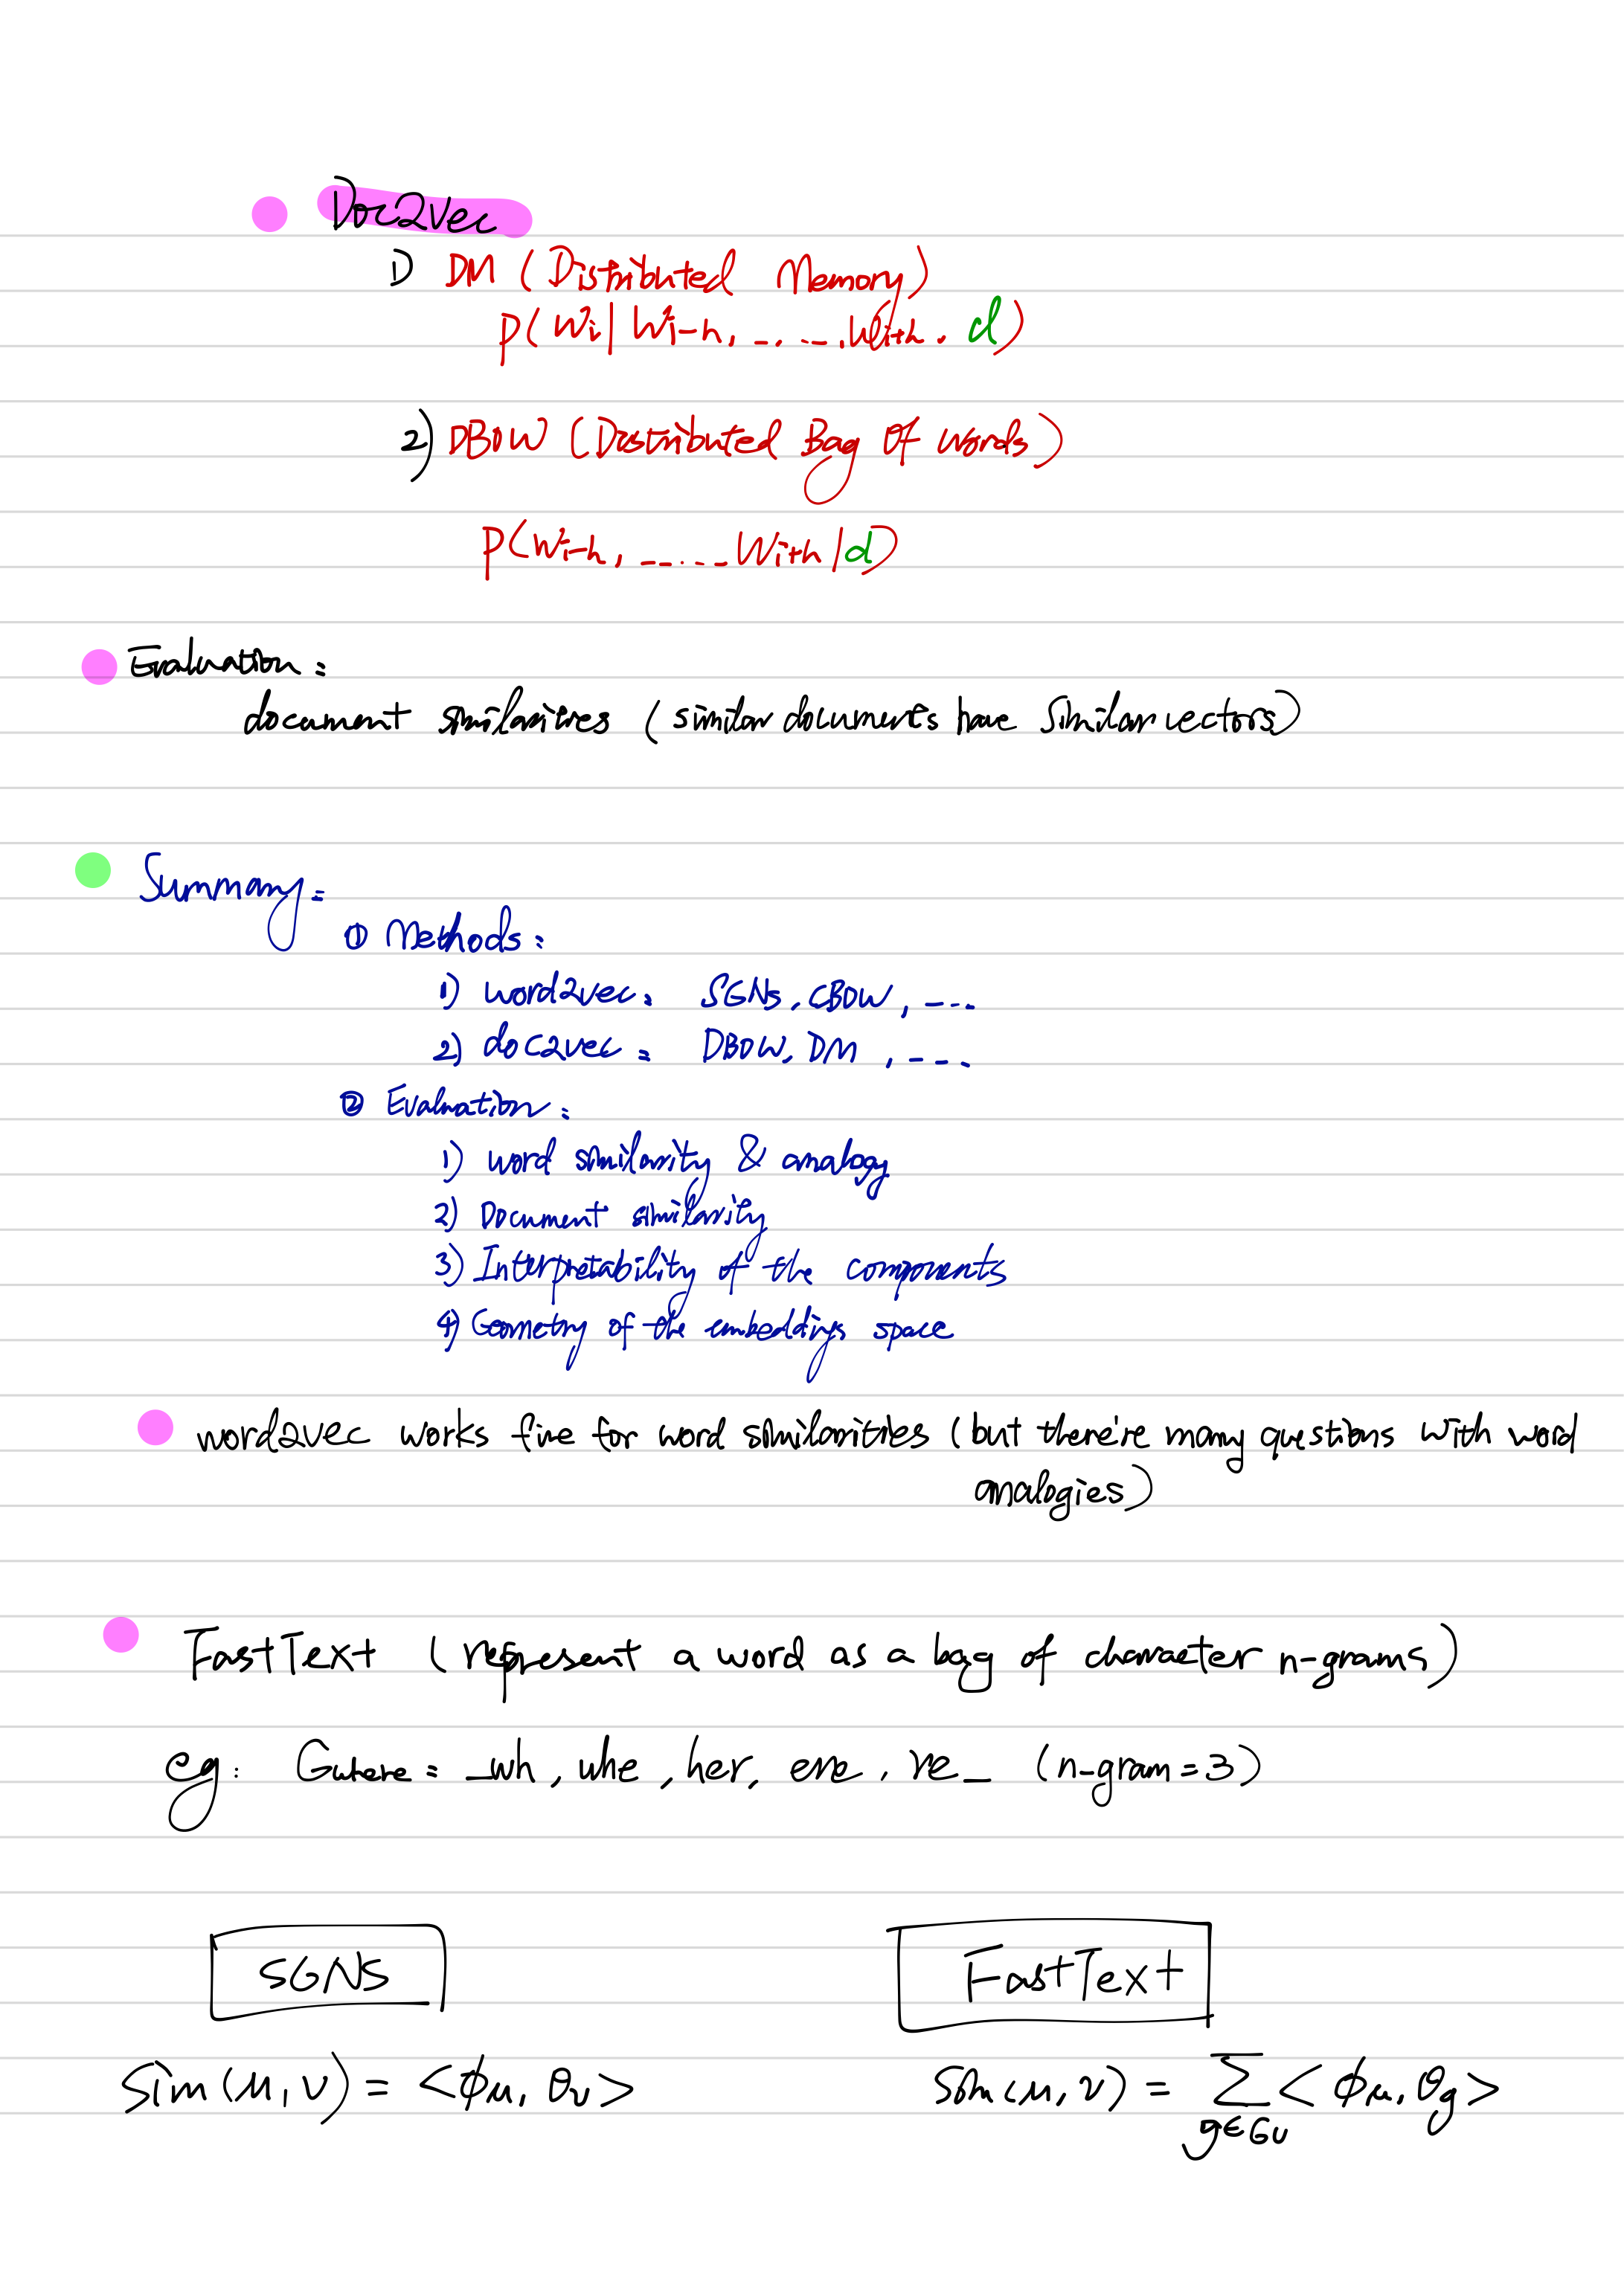 Doc2Vec
1) DM (Distributed Memory)
P(Wi | Wi-h, ...... , Wi+h, d)
2) DBOW (Distributed Bag Of Words)
P(Wi-h, ...... Wi+h | d)
Evaluation:
document similarities (similar documents have similar vectors)
Summary:
① Methods:
1) word2vec: SGNS, CBOW, ...
2) doc2vec: DBOW, DM, ...
② Evaluation:
1) word similarity & analogy
2) Document similarity
3) Interpretability of the components
4) Geometry of the embeddings space
word2vec works fine for word similarities (but there're many questions with word
analogies)
FastText (represent a word as a bag of character n-grams)
eg: Gwhere = _wh, whe, her, ere, re_ (n-gram=3)
SGNS FastText
Sim(u, v) = <ϕu, θv> Sim(u, v) = ∑ <ϕu, θg>
g∈Gv